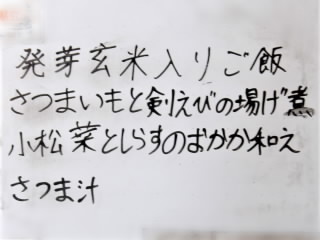 発芽玄米入りご飯
さつまいもと剣えびの揚げ煮
小松菜としらすのおかか和え
さつま汁